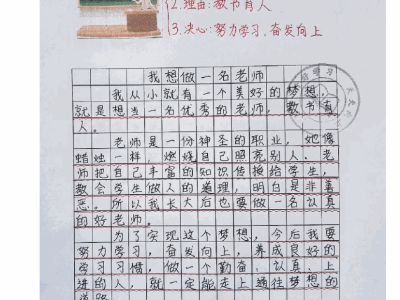 2.理由:教书育人
3.决心:努力学习、奋发向上
我想做一名老师
我从小就有一个美好的梦想,
就是想当一名优秀的老师,教书育
人。
老师是一份神圣的职业,她像
蜡烛一样,燃烧自己照亮别人。老
师把自己丰富的知识传授给学生,
教会学生做人的道理,明白是非善
恶。所以我长大后也要做一名认真
的好老师。
为了实现这个梦想,今后我要
努力学习,奋发向上,养成良好的
学习习惯,做一个勤奋、认真、上
进的人,就一定能走上通往梦想的
道路